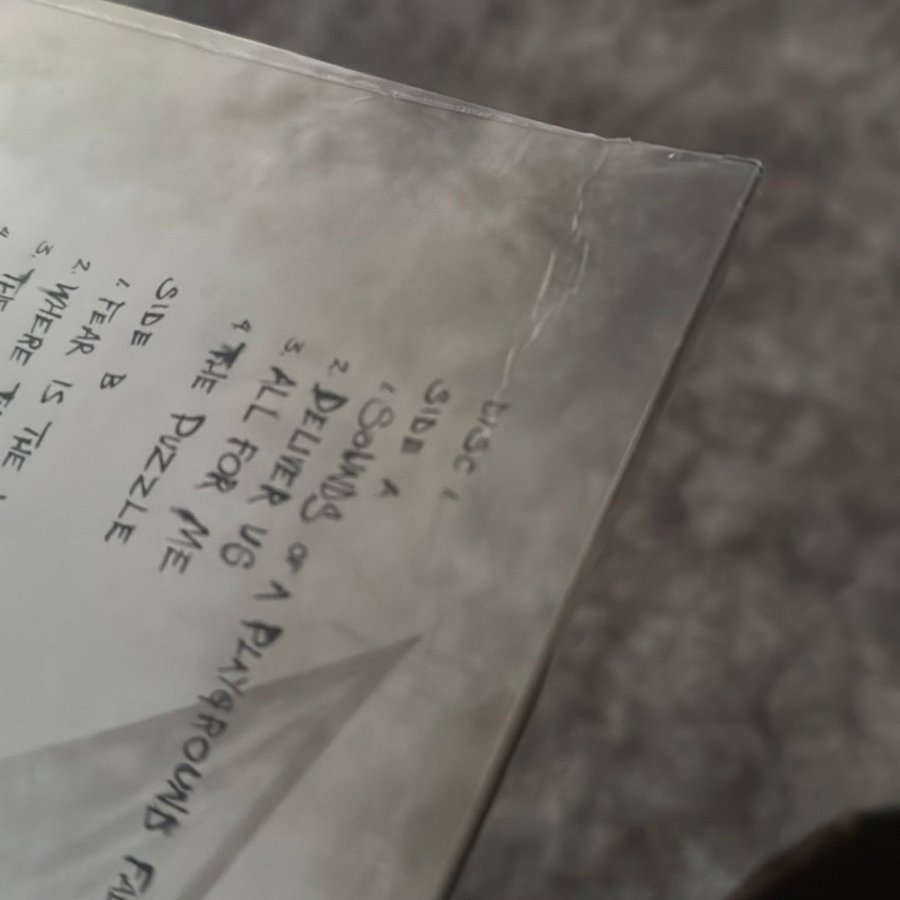 DISC 1
SIDE A
1. SOUNDS OF A PLAYGROUND FAD
2. DELIVER US
3. ALL FOR ME
4 THE PUZZLE
SIDE B
1. FEAR IS THE
2. WHERE
3. THE
4